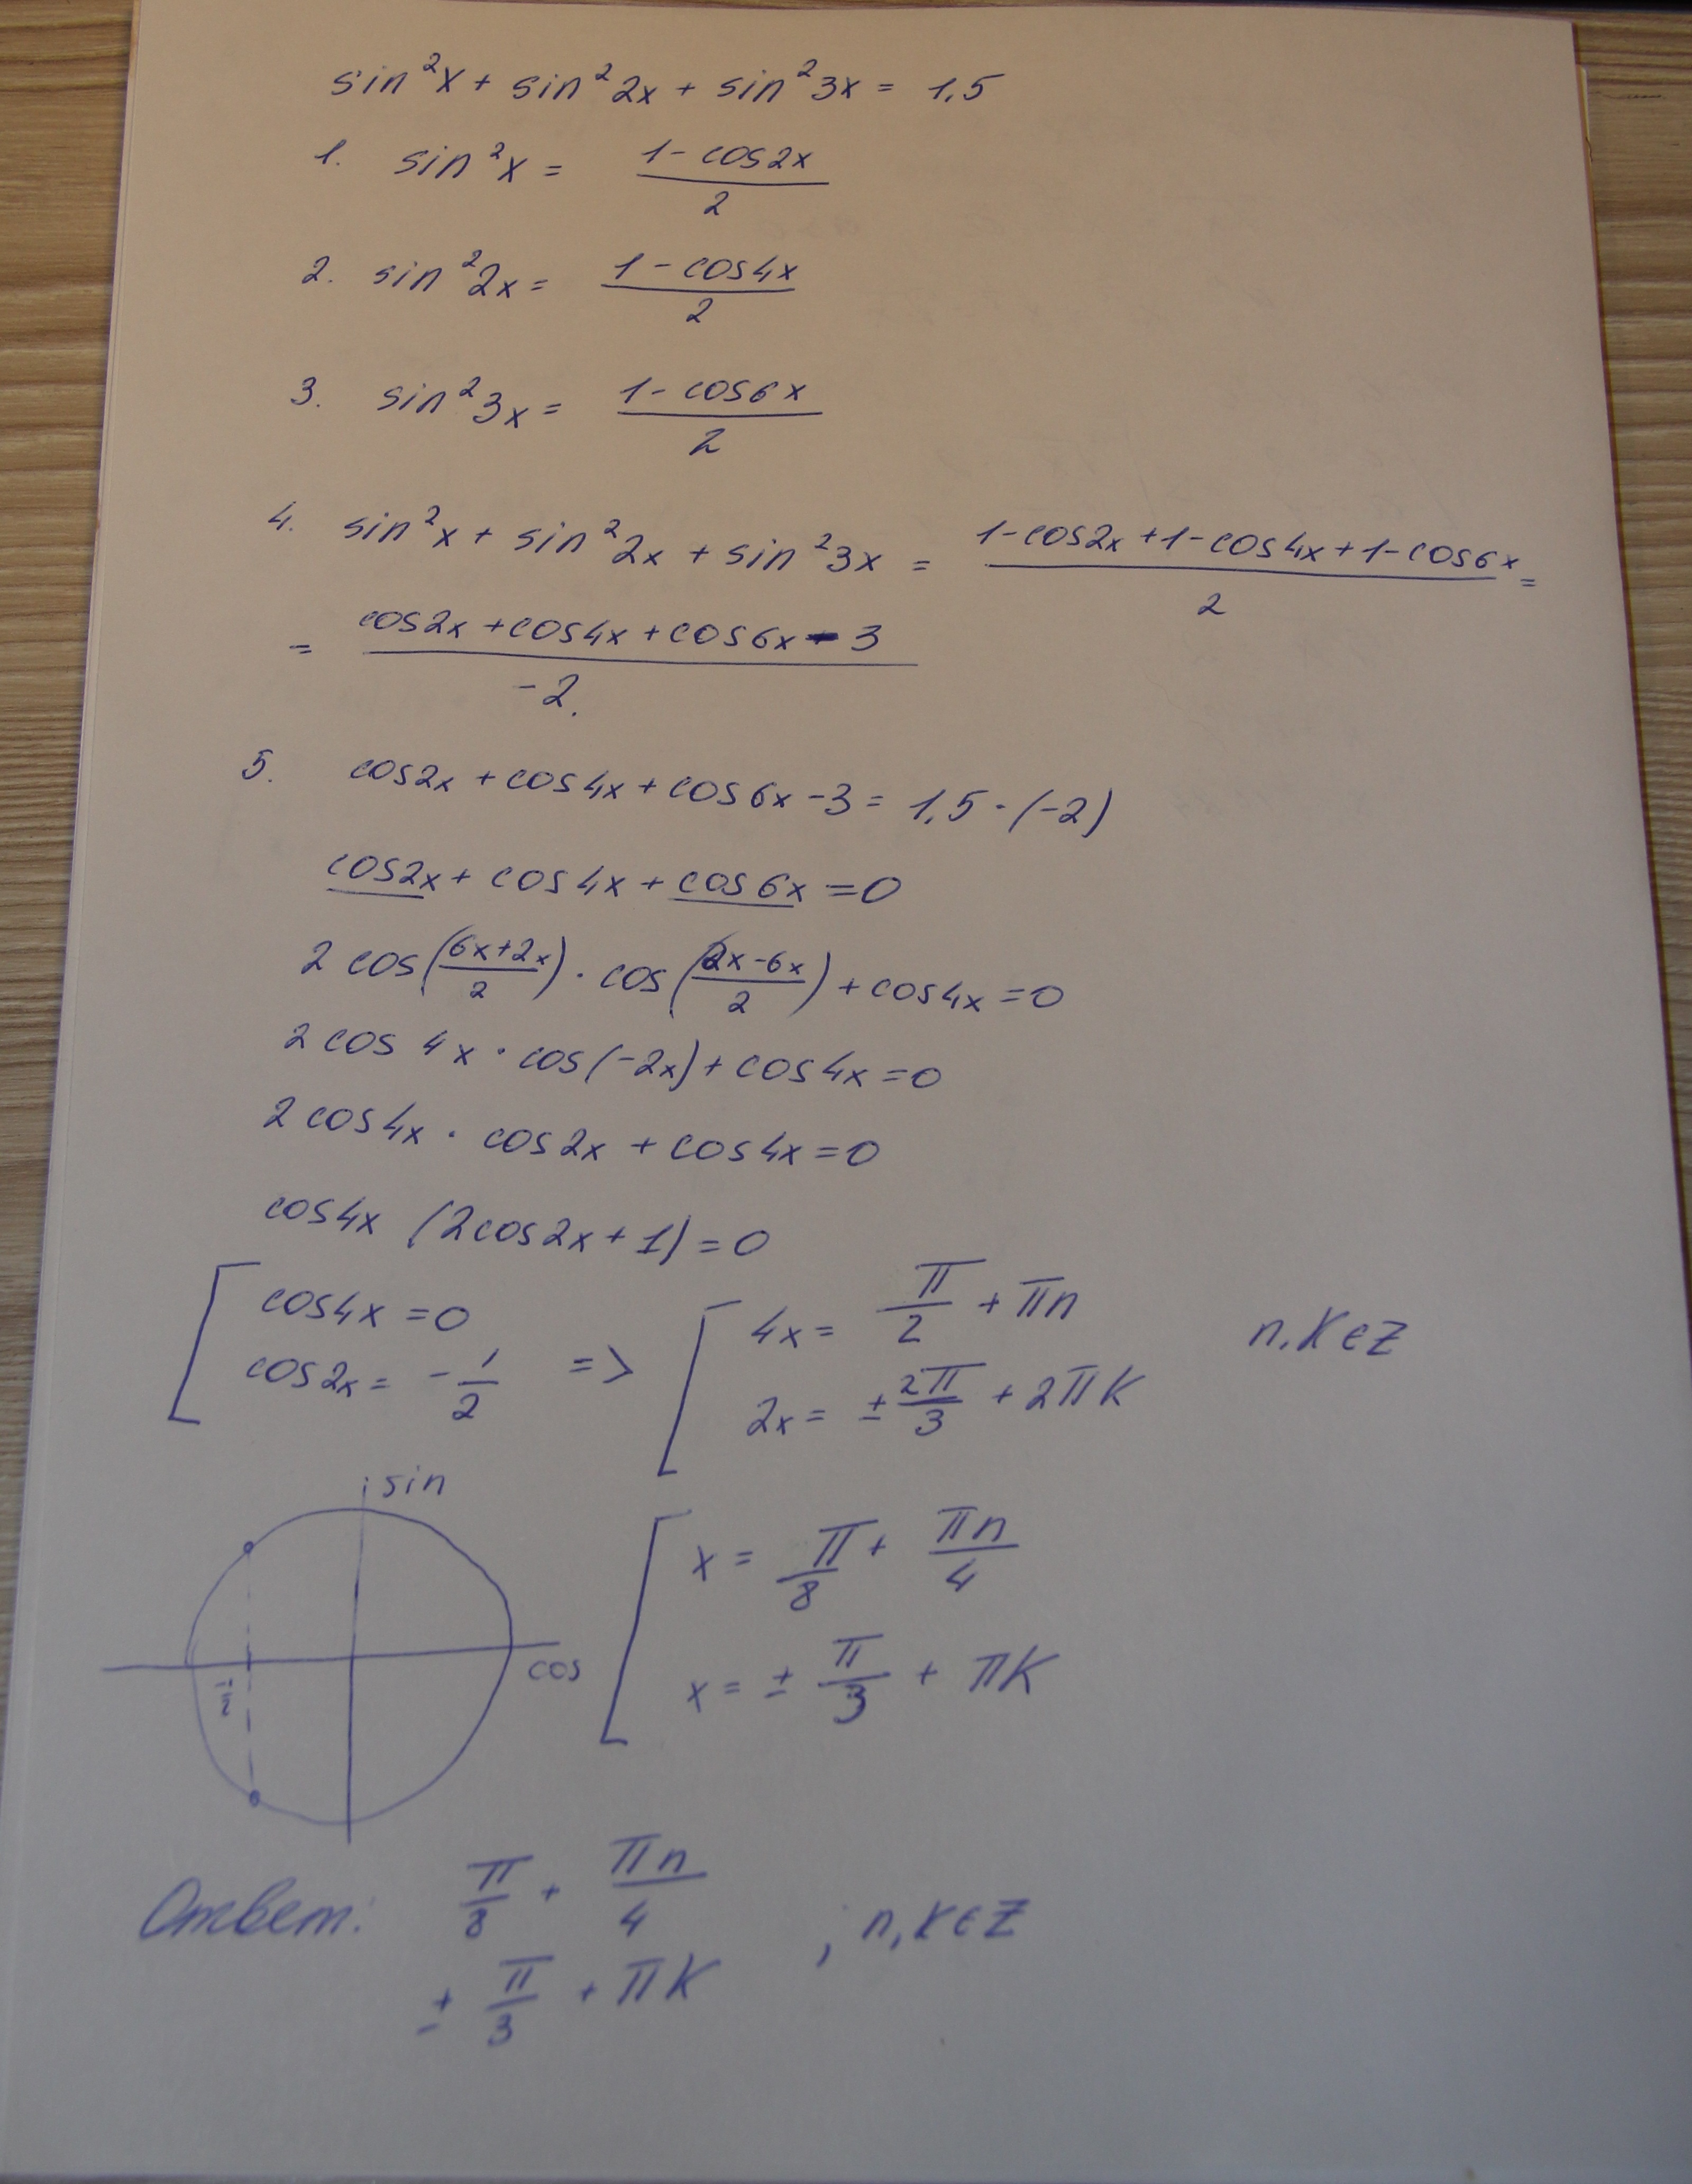 sin²x + sin²2x + sin²3x = 1,5
1. sin²x = (1-cos2x)/2
2. sin²2x = (1-cos4x)/2
3. sin²3x = (1-cos6x)/2
4. sin²x + sin²2x + sin²3x = (1-cos2x+1-cos4x+1-cos6x)/2 =
= (cos2x+cos4x+cos6x-3)/-2.
5. cos2x + cos4x + cos6x - 3 = 1,5·(-2)
cos2x + cos4x + cos6x = 0
2 cos((6x+2x)/2) · cos((2x-6x)/2) + cos4x = 0
2 cos 4x · cos(-2x) + cos4x = 0
2 cos4x · cos2x + cos4x = 0
cos4x (2cos2x + 1) = 0
[ cos4x = 0 => [ 4x = π/2 + πn n,k∈Z
cos2x = -1/2 2x = ±2π/3 + 2πk
sin
cos
-1/2
[ x = π/8 + πn/4
x = ± π/3 + πk
Ответ: π/8 + πn/4 ; n,k∈Z
± π/3 + πk